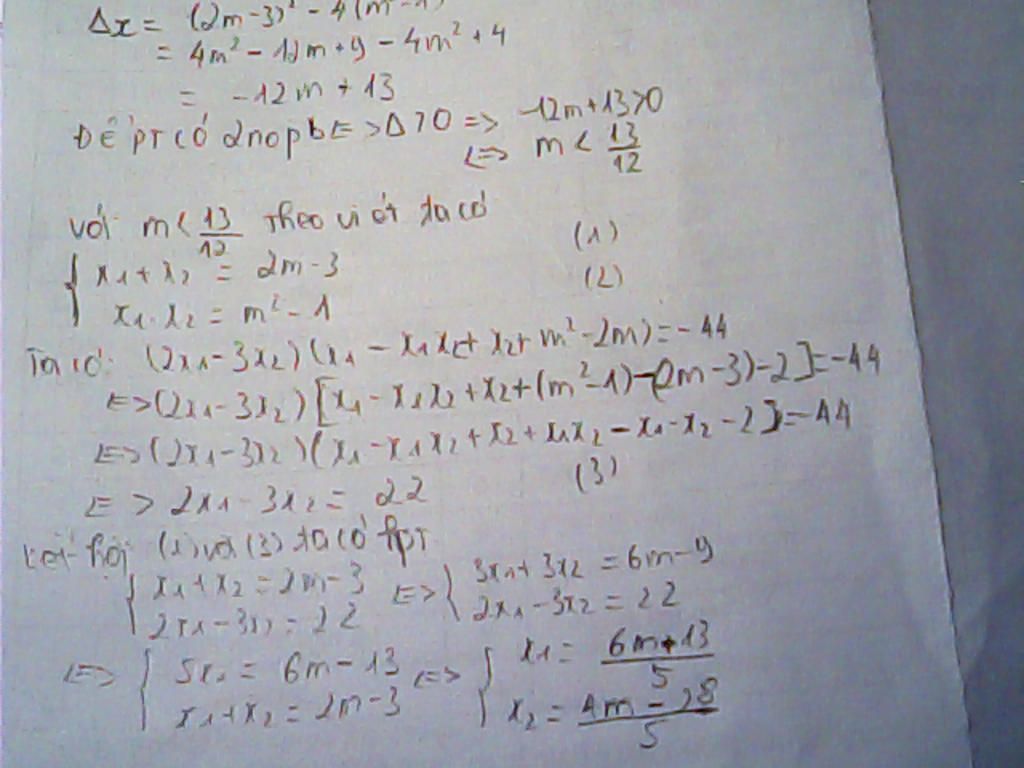 Δx = (2m-3)² - 4(m²-1)
= 4m² - 12m + 9 - 4m² + 4
= -12m + 13
Để pt có 2nopb <=> Δ>0 => -12m+13>0
<=> m < 13/12
với m < 13/12 Theo vi ét ta có
{ x₁+x₂ = 2m-3 (1)
x₁.x₂ = m²-1 (2)
Ta có: (2x₁-3x₂)(x₁ - x₁x₂+ x₂+ m²-2m)=-44
<=>(2x₁-3x₂)[x₁-x₁x₂+x₂+(m²-1)-(2m-3)-2]=-44
<=>(2x₁-3x₂)(x₁-x₁x₂+x₂+x₁x₂-x₁-x₂-2]=-44
<=> 2x₁-3x₂ = 22 (3)
Kết hợp (1) và (3) ta có hpt
{ x₁+x₂ = 2m-3 <=> { 3x₁+3x₂ = 6m-9
2x₁-3x₂ = 22 2x₁-3x₂ = 22
<=> { 5x₁ = 6m-13 <=> { x₁ = 6m+13/5
x₁+x₂ = 2m-3 x₂ = 4m-28/5